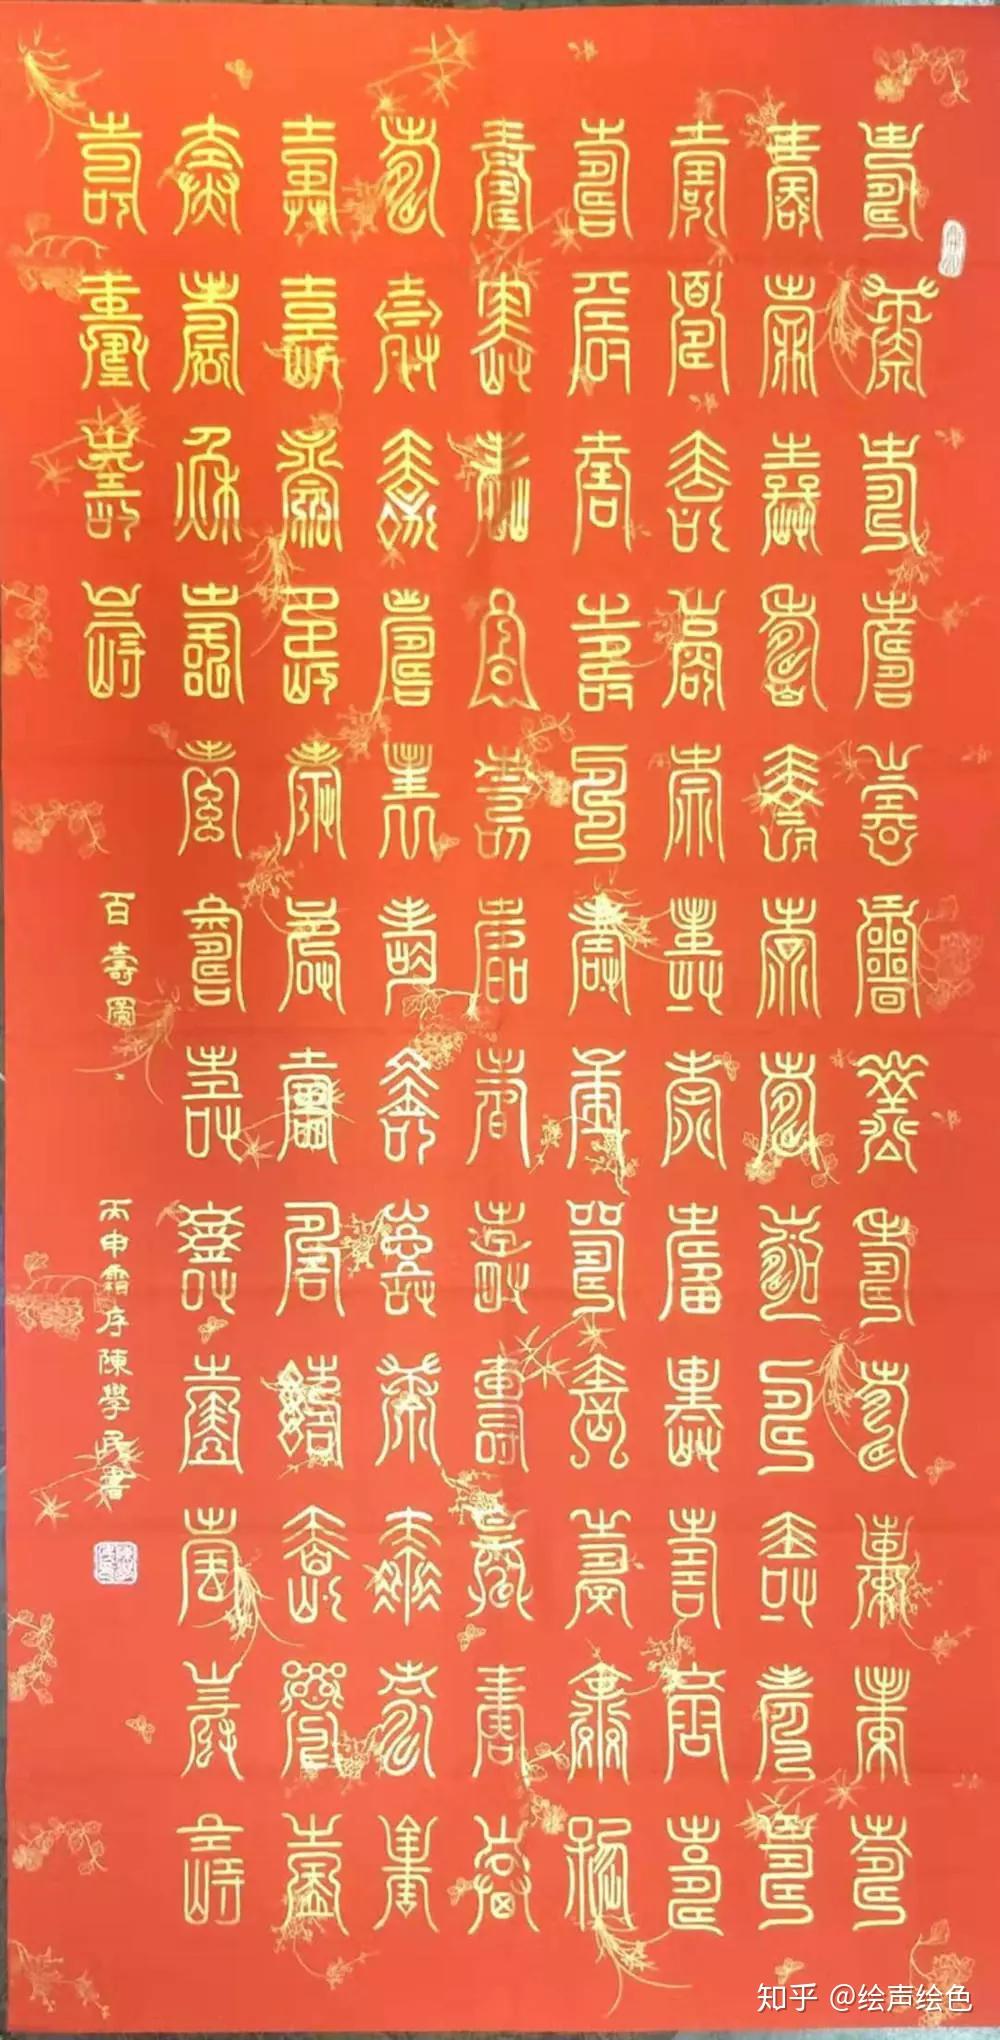 壽壽壽壽壽壽壽壽壽壽壽壽
壽壽壽壽壽壽壽壽壽壽壽壽
壽壽壽壽壽壽壽壽壽壽壽壽
壽壽壽壽壽壽壽壽壽壽壽壽
壽壽壽壽壽壽壽壽壽壽壽壽
壽壽壽壽壽壽壽壽壽壽壽壽
壽壽壽壽壽壽壽壽壽壽壽壽
壽壽壽壽壽壽壽壽壽壽壽壽
壽壽壽壽
百壽圖
丙申霜序陳學民書
知乎 @绘声绘色